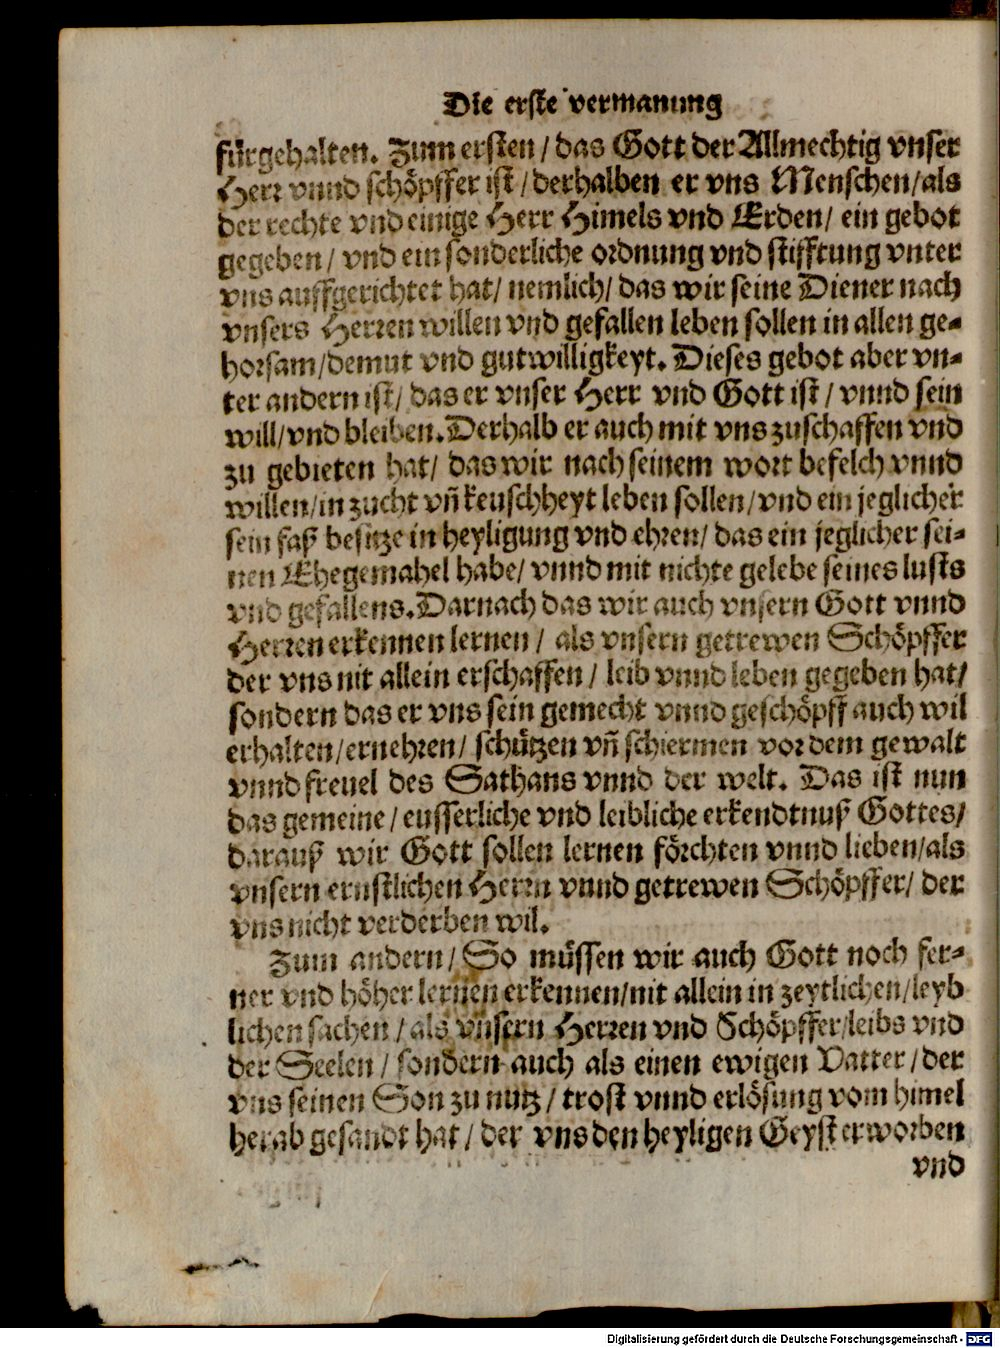 Die erste vermanung
fürgehalten. Zum ersten / das Gott der Allmechtig vnser
Herr vnnd schöpffer ist / derhalben er vns Menschen / als
der rechte vnd einige Herr Himels vnd Erden / ein gebot
gegeben / vnd ein sonderliche ordnung vnd stifftung vnter
vns auffgerichtet hat / nemlich / das wir seine Diener nach
vnsers Herren willen vnd gefallen leben sollen in allen ge-
horsam / demut vnd gutwilligkeyt. Dieses gebot aber vn-
ter andern ist / das er vnser Herr vnd Gott ist / vnnd sein
will / vnd bleiben. Derhalb er auch mit vns zuschaffen vnd
zu gebieten hat / das wir nach seinem wort befelch vnnd
willen / in zucht vñ keuschheyt leben sollen / vnd ein jeglicher
sein faß besitze in heyligung vnd ehren / das ein jeglicher sei-
nen Ehegemahel habe / vnnd mit nichte gelebe seines lusts
vnd gefallens. Darnach das wir auch vnsern Gott vnnd
Herren erkennen lernen / als vnsern getrewen Schöpffer
der vns nit allein erschaffen / leib vnnd leben gegeben hat /
sondern das er vns sein gemecht vnnd geschöpff auch wil
erhalten / ernehren / schützen vñ schiermen vor dem gewalt
vnnd freuel des Sathans vnnd der welt. Das ist nun
das gemeine / eusserliche vnd leibliche erkendtnuß Gottes /
darauß wir Gott sollen lernen förchten vnnd lieben / als
vnsern ernstlichen Herrn vnnd getrewen Schöpffer / der
vns nicht verderben wil.
Zum andern / So müssen wir auch Gott noch fer-
ner vnd höher lernen erkennen / nit allein in zeytlichen / leyb
lichen sachen / als vnsern Herren vnd Schöpffer / leibs vnd
der Seelen / sondern auch als einen ewigen Vatter / der
vns seinen Son zu nutz / trost vnnd erlösung vom himel
herab gesandt hat / der vns den heyligen Geyst erworben
vnd
Digitalisierung gefördert durch die Deutsche Forschungsgemeinschaft - DFG